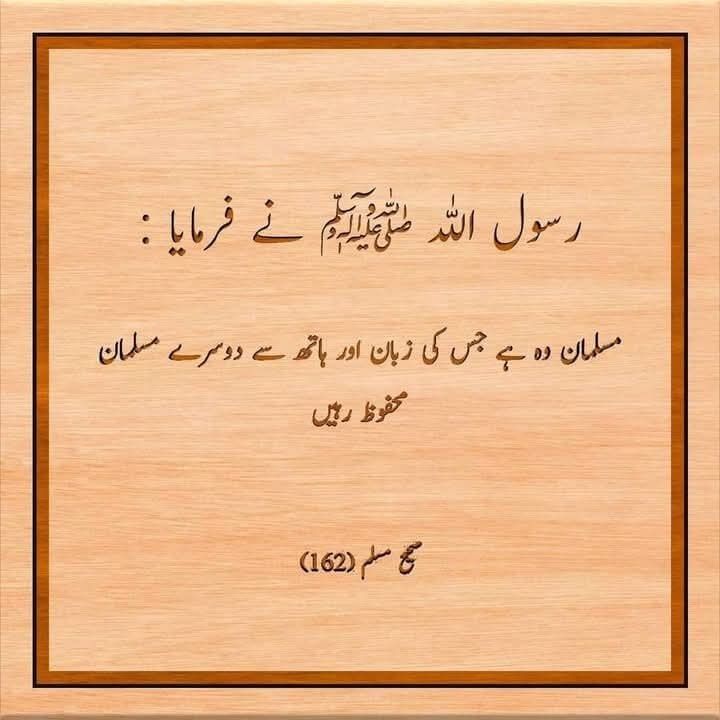 رسول اللہ ﷺ نے فرمایا :
مسلمان وہ ہے جس کی زبان اور ہاتھ سے دوسرے مسلمان
محفوظ رہیں
صحیح مسلم (162)